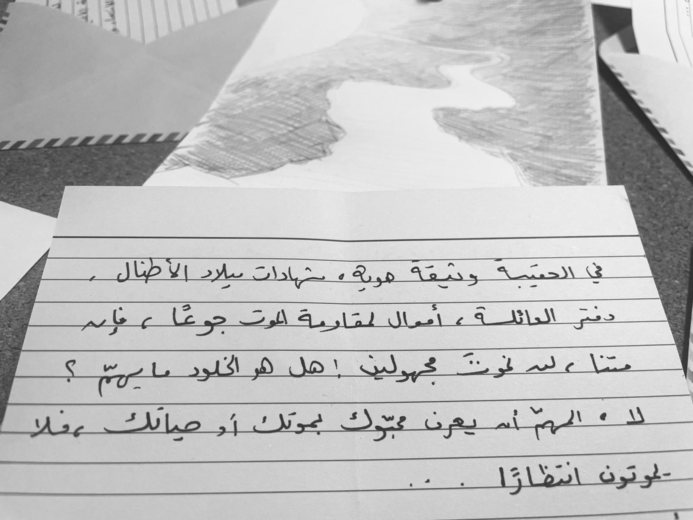 في الحقيبة وثيقة هوية، شهادات ميلاد الأطفال،
دفتر العائلة، أموال لمقاومة الموت جوعًا، فإن
متنا، لن نموتَ مجهولين! هل هو الخلود ما يهمّ؟
لا، المهمّ أن يعرف محبّوك بموتك أو حياتك، فلا
يموتون انتظارًا . . .